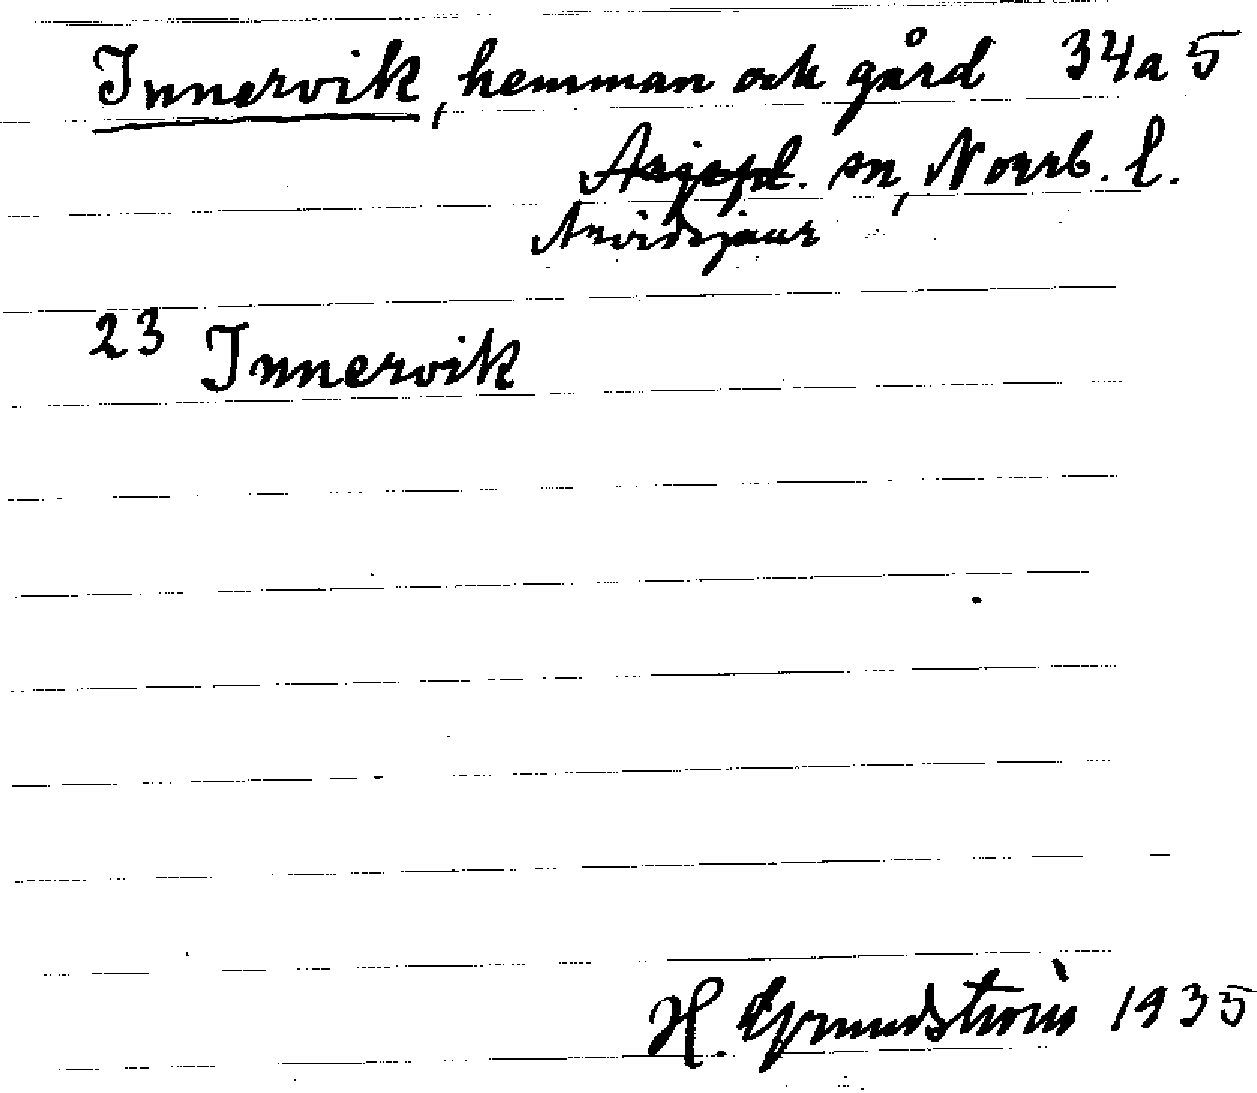 Innervik, hemman och gård 34a5
Arjepl. sn, Norrb. l.
Arvidsjaur
23 Innervik
H. Grundström 1935